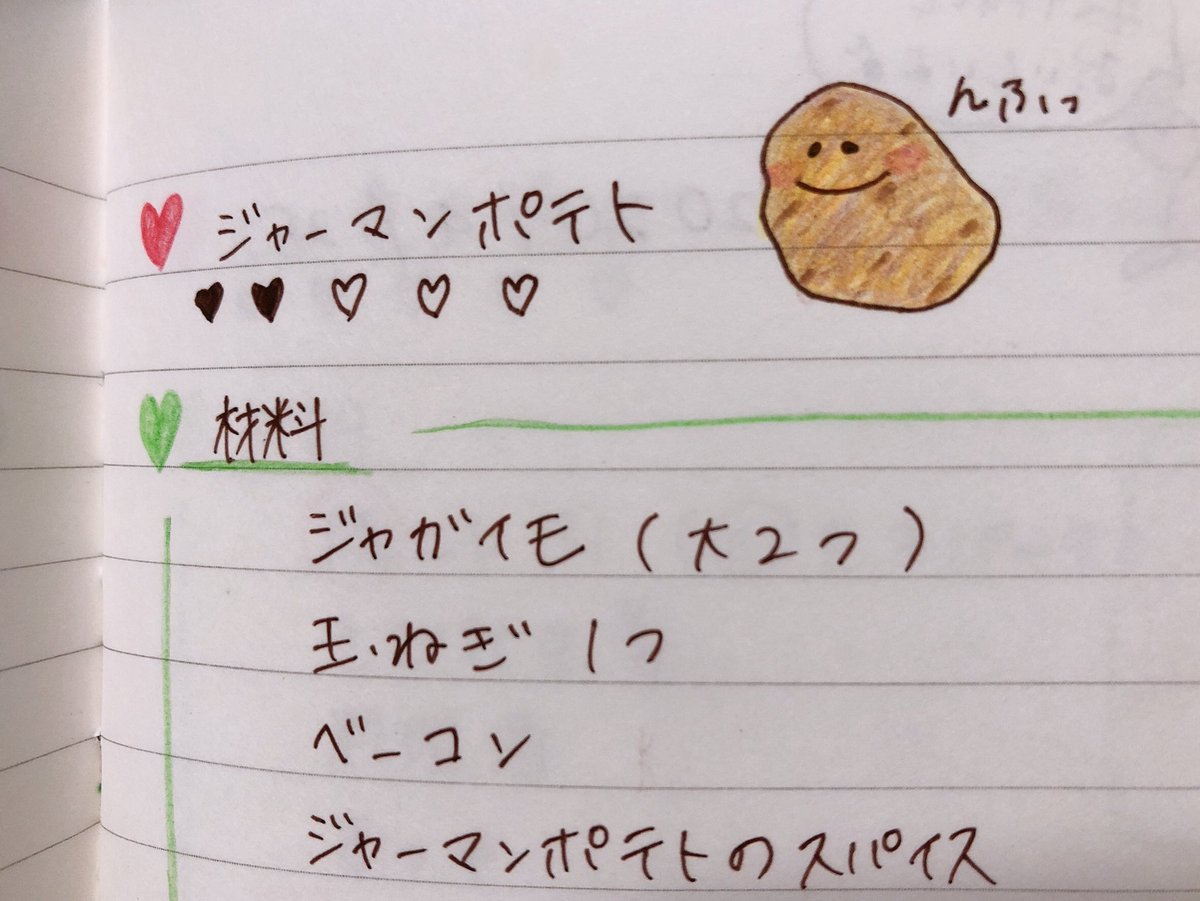 んふっ
ジャーマンポテト
♥♥♡♡♡
材料
ジャガイモ(大2つ)
玉ねぎ 1つ
ベーコン
ジャーマンポテトのスパイス